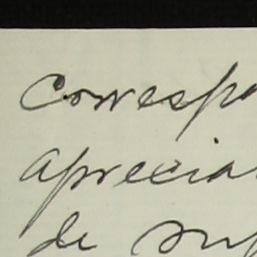 corresp
aprecia
de su